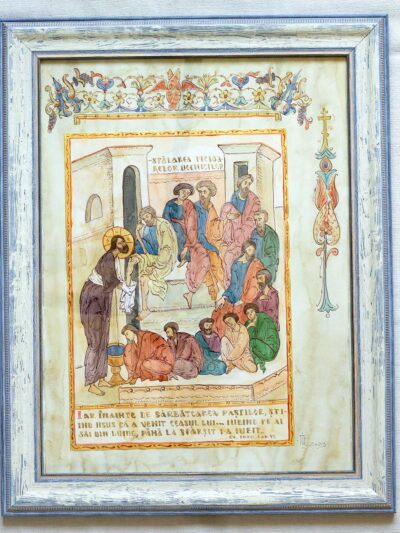 SPĂLAREA PICIOA-
RELOR UCENICILOR
IAR ÎNAINTE DE SĂRBĂTOAREA PAȘTILOR, ȘTI-
IND IISUS CĂ A VENIT CEASUL LUI... IUBIND PE AI
SĂI DIN LUME, PÂNĂ LA SFÂRȘIT I-A IUBIT.